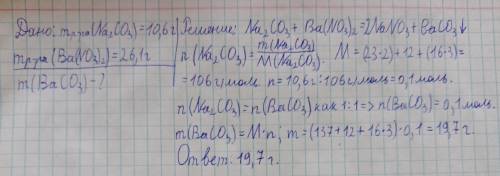 Дано: mр-ра(Na₂CO₃)=10,6г
mр-ра(Ba(NO₃)₂)=26,1г
m(BaCO₃)-?
Решение: Na₂CO₃+Ba(NO₃)₂=2NaNO₃+BaCO₃↓
n(Na₂CO₃)=m(Na₂CO₃)/M(Na₂CO₃). M=(23·2)+12+(16·3)=
=106г/моль n=10,6г:106г/моль=0,1моль.
n(Na₂CO₃)=n(BaCO₃) как 1:1=>n(BaCO₃)=0,1моль.
m(BaCO₃)=M·n; m=(137+12+16·3)·0,1=19,7г.
Ответ: 19,7г.